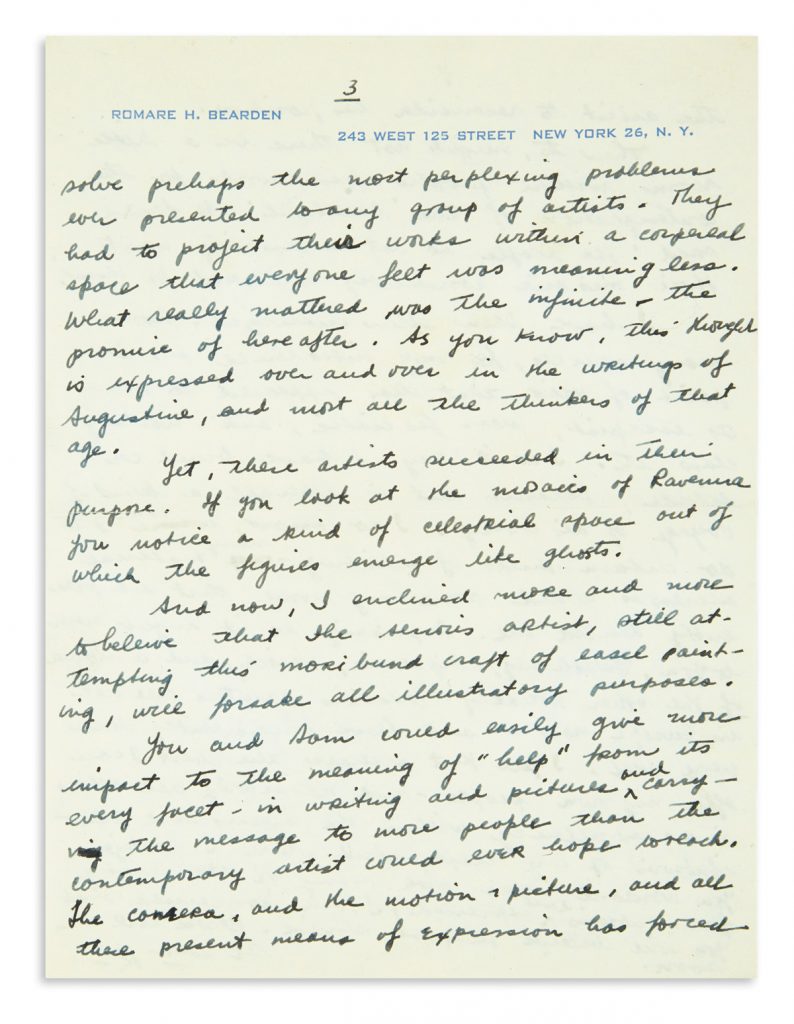 3
ROMARE H. BEARDEN
243 WEST 125 STREET NEW YORK 26, N. Y.
solve prehaps the most perplexing problems
ever presented to any group of artists. They
had to project their works within a corpereal
space that everyone felt was meaningless.
What really mattered was the infinite - the
promise of hereafter. As you know, this thought
is expressed over and over in the writings of
Augustine, and most all the thinkers of that
age.
Yet, these artists succeeded in their
purpose. If you look at the mosaics of Ravenna
you notice a kind of celestrial space out of
which the figures emerge like ghosts.
And now, I enclined more and more
to beleive that the serious artist, still at-
tempting this moribund craft of easel paint-
ing, will forsake all illustratory purposes.
You and Sam could easily give more
impact to the meaning of "help" from its
every facet - in writing and pictures and carry-
ing the message to more people than the
contemporary artist could ever hope to reach.
The camera, and the motion-picture, and all
these present means of expression has forced